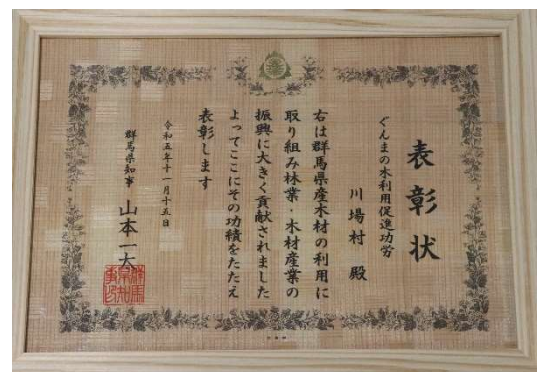 表彰状
ぐんまの木利用促進功労
川場村 殿
右は群馬県産木材の利用に
取り組み林業・木材産業の
振興に大きく貢献されました
よってここにその功績をたたえ
表彰します
令和五年十一月十五日
群馬県知事 山本一太